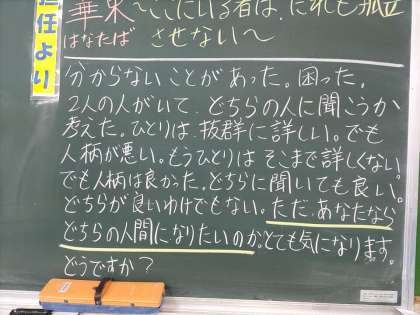 担任より
華束〜ここにいる者は、だれも孤立
はなたば させない〜
分からないことがあった。困った。
2人の人がいて、どちらの人に聞こうか
考えた。ひとりは、抜群に詳しい。でも
人柄が悪い。もうひとりは そこまで詳しくない。
でも人柄は良かった。どちらに聞いても良い。
どちらが良いわけでもない。ただ、あなたなら
どちらの人間になりたいのか。とても気になります。
どうですか？